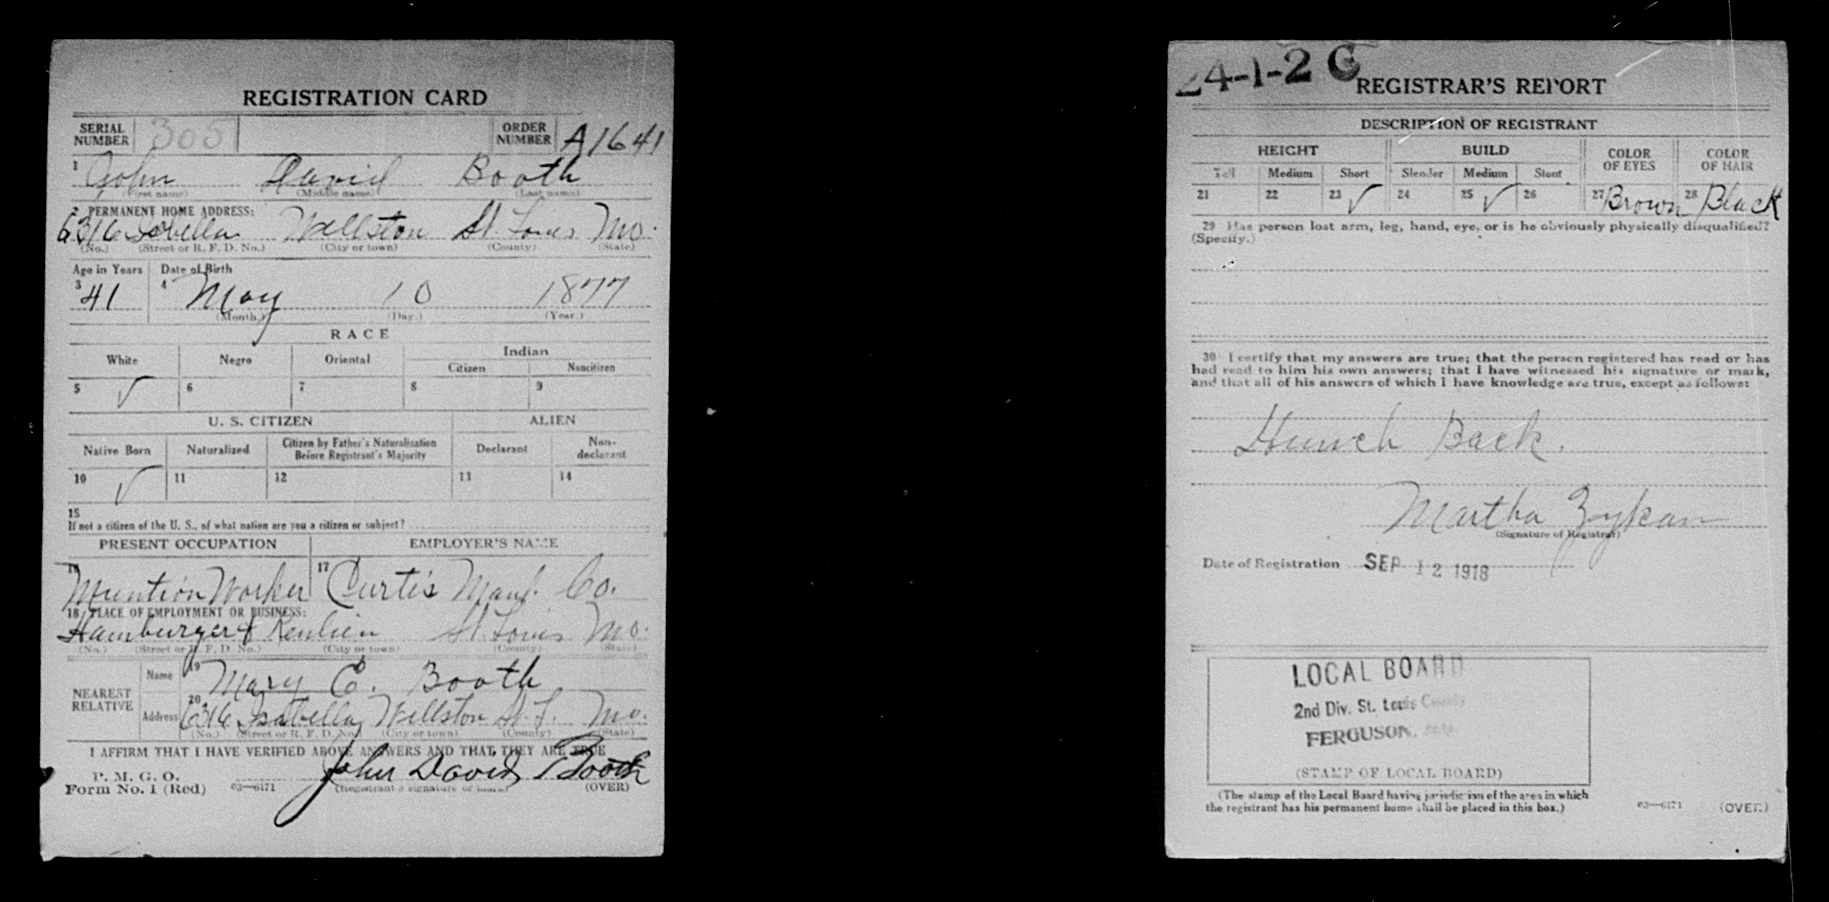 REGISTRATION CARD
SERIAL NUMBER 305 ORDER NUMBER A1641
1 John David Booth
(First name) (Middle name) (Last name)
2 PERMANENT HOME ADDRESS:
6316 Isabella Wellston St. Louis Mo.
(No.) (Street or R. F. D. No.) (City or town) (County) (State)
Age in Years Date of Birth
3 41 4 May 10 1877
(Month.) (Day.) (Year.)
RACE
White Negro Oriental Indian
Citizen Noncitizen
5 ✓ 6 7 8 9
U. S. CITIZEN ALIEN
Native Born Naturalized Citizen by Father's Naturalization Before Registrant's Majority Declarant Non-declarant
10 ✓ 11 12 13 14
15
If not a citizen of the U. S., of what nation are you a citizen or subject?
PRESENT OCCUPATION EMPLOYER'S NAME
16 Munition Worker 17 Curtis Manf. Co.
18 PLACE OF EMPLOYMENT OR BUSINESS:
Hamburger & Kenlien St. Louis Mo.
(No.) (Street or R. F. D. No.) (City or town) (County) (State)
NEAREST RELATIVE
Name 19 Mary E. Booth
Address 20 6316 Isabella, Wellston St. L. Mo.
(No.) (Street or R. F. D. No.) (City or town) (County) (State)
I AFFIRM THAT I HAVE VERIFIED ABOVE ANSWERS AND THAT THEY ARE TRUE
P. M. G. O.
Form No. 1 (Red) 03—6171 John David Booth
(Registrant's signature or mark) (OVER)
24-1-2 C
REGISTRAR'S REPORT
DESCRIPTION OF REGISTRANT
HEIGHT BUILD COLOR OF EYES COLOR OF HAIR
Tall Medium Short Slender Medium Stout
21 22 23 ✓ 24 25 ✓ 26 27 Brown 28 Black
29 Has person lost arm, leg, hand, eye, or is he obviously physically disqualified?
(Specify.)
30 I certify that my answers are true; that the person registered has read or has
had read to him his own answers; that I have witnessed his signature or mark,
and that all of his answers of which I have knowledge are true, except as follows:
Hunch Back.
Martha Zykan
(Signature of Registrar)
Date of Registration SEP 12 1918
LOCAL BOARD
2nd Div. St. Louis County
FERGUSON, Mo.
(STAMP OF LOCAL BOARD)
(The stamp of the Local Board having jurisdiction of the area in which
the registrant has his permanent home shall be placed in this box.)
03—6171 (OVER)